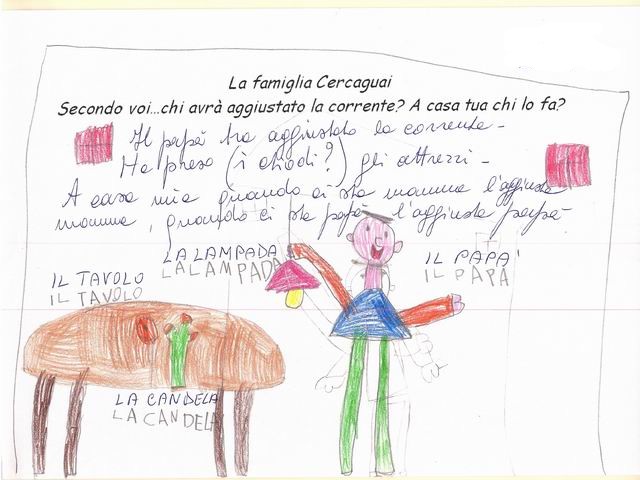 La famiglia Cercaguai
Secondo voi...chi avrà aggiustato la corrente? A casa tua chi lo fa?
Il papà ha aggiustato la corrente -
Ha preso (i chiodi?) gli attrezzi -
A casa mia quando ci sta mamma l'aggiusta
mamma, quando ci sta papà l'aggiusta papà -
LA LAMPADA
LA LAMPADA
IL PAPA'
IL PAPA
IL TAVOLO
IL TAVOLO
LA CANDELA
LA CANDELA